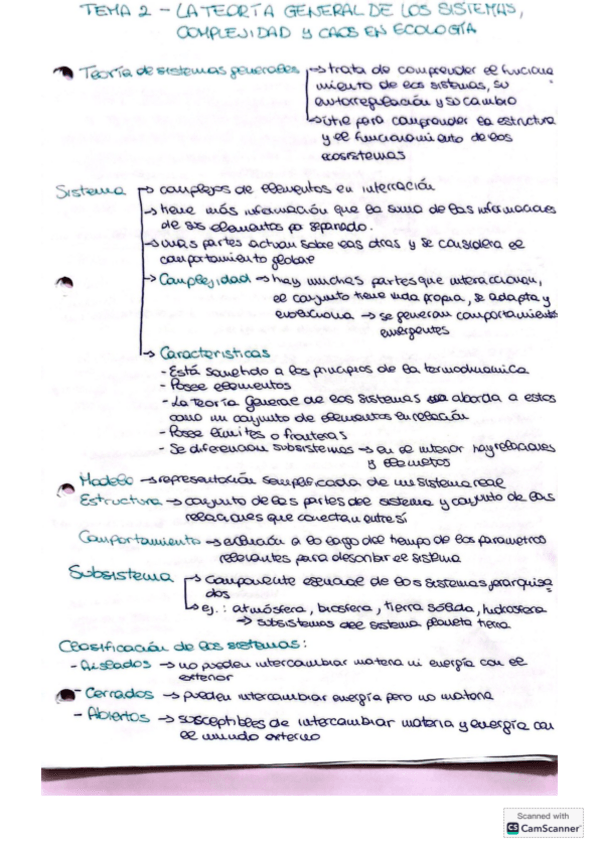 TEMA 2 - LA TEORÍA GENERAL DE LOS SISTEMAS,
COMPLEJIDAD y CAOS EN ECOLOGÍA
Teoría de sistemas generales → trata de comprender el funciona
miento de los sistemas, su
autorregulación y su cambio
→ útil para comprender la estructura
y el funcionamiento de los
ecosistemas
Sistema → complejos de elementos en interacción
→ tiene más información que la suma de las informaciones
de sus elementos por separado.
→ unas partes actúan sobre las otras y se considera el
comportamiento global
→ Complejidad → hay muchas partes que interaccionan,
el conjunto tiene vida propia, se adapta y
evoluciona → se generan comportamientos
emergentes
→ Características
- Está sometido a los principios de la termodinámica
- Posee elementos
- La Teoría General de los Sistemas aborda a estos
como un conjunto de elementos en relación
- Posee límites o fronteras
- Se diferencian subsistemas → en el interior hay relaciones
y elementos
Modelo → representación simplificada de un sistema real
Estructura → conjunto de las partes del sistema y conjunto de las
relaciones que conectan entre sí
Comportamiento → evolución a lo largo del tiempo de los parámetros
relevantes para describir el sistema
Subsistema → componente esencial de los sistemas jerarquiza
dos
→ ej.: atmósfera, biosfera, tierra sólida, hidrosfera
→ subsistemas del sistema planeta tierra
Clasificación de los sistemas:
- Aislados → no pueden intercambiar materia ni energía con el
exterior
- Cerrados → pueden intercambiar energía pero no materia
- Abiertos → susceptibles de intercambiar materia y energía con
el mundo externo
Scanned with
CS CamScanner